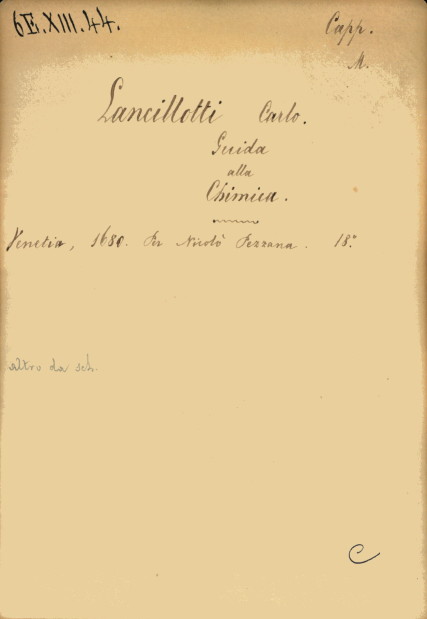 6E.XIII.44.
Capp.
M.
Lancillotti Carlo.
Guida
alla
Chimica.
Venetia, 1680. Per Nicolò Pezzana. 18.°
altro da sch.
C